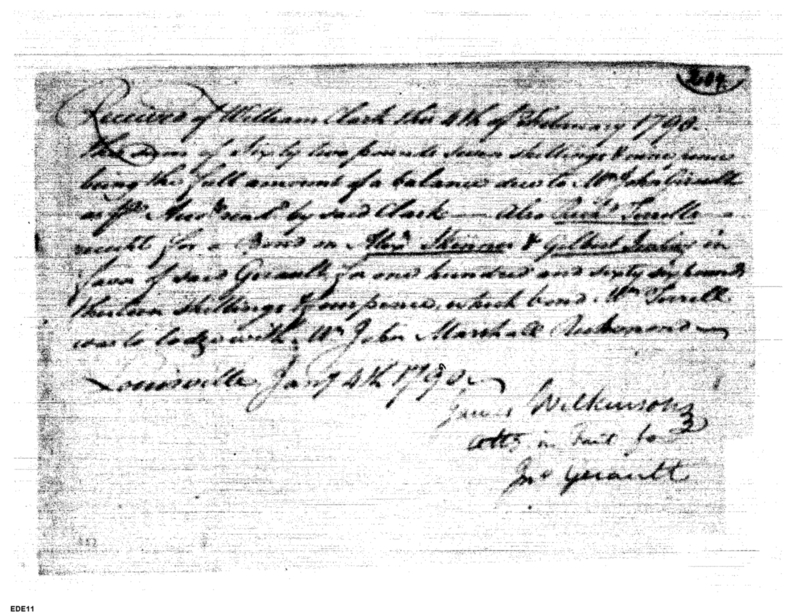 204
Received of William Clark this 4th of February 1790
the sum of Sixty two pounds seven shillings & nine pence
being the full amount of a balance due to Mr John Girault
as by said Clark — Also Terrells
receitt for a Bond on Alexr Skinner & Gilbert in
favor of said Girault for one hundred and sixty six pounds
thirteen shillings & four pence, which bond Mr Terrell
was to lodge with Mr John Marshall Richmond —
Louisville Jany 4th 1790
James Wilkinson
atty in Fact for
Jno Girault
EDE11